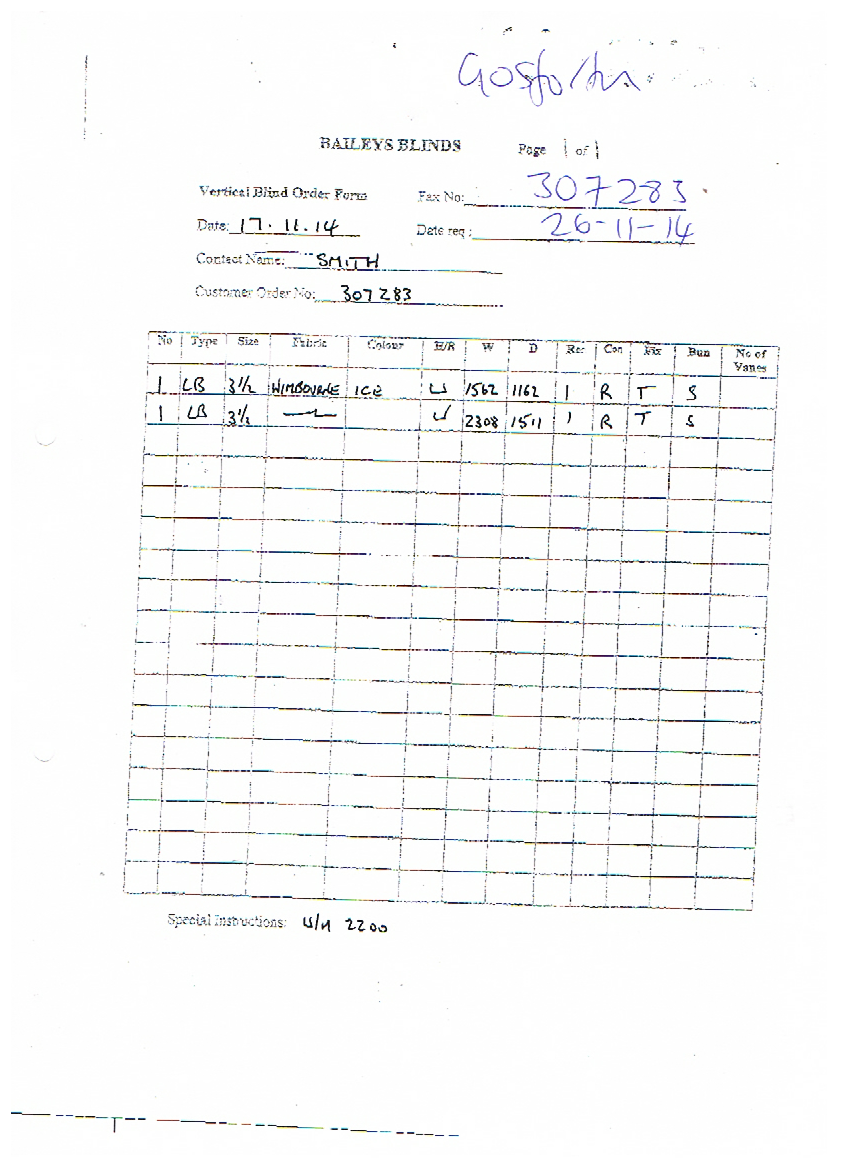 Gosforth
BAILEYS BLINDS Page 1 of 1
Vertical Blind Order Form Fax No: 307283
Date: 17.11.14 Date req: 26-11-14
Contact Name: SMITH
Customer Order No: 307283
No Type Size Fabric Colour E/R W D Rec Con Fix Bun No of Vanes
1 LB 3½ WIMBOURNE ICE U 1562 1162 1 R T S
1 LB 3½ U 2308 1511 1 R T S
Special Instructions: U/H 2200